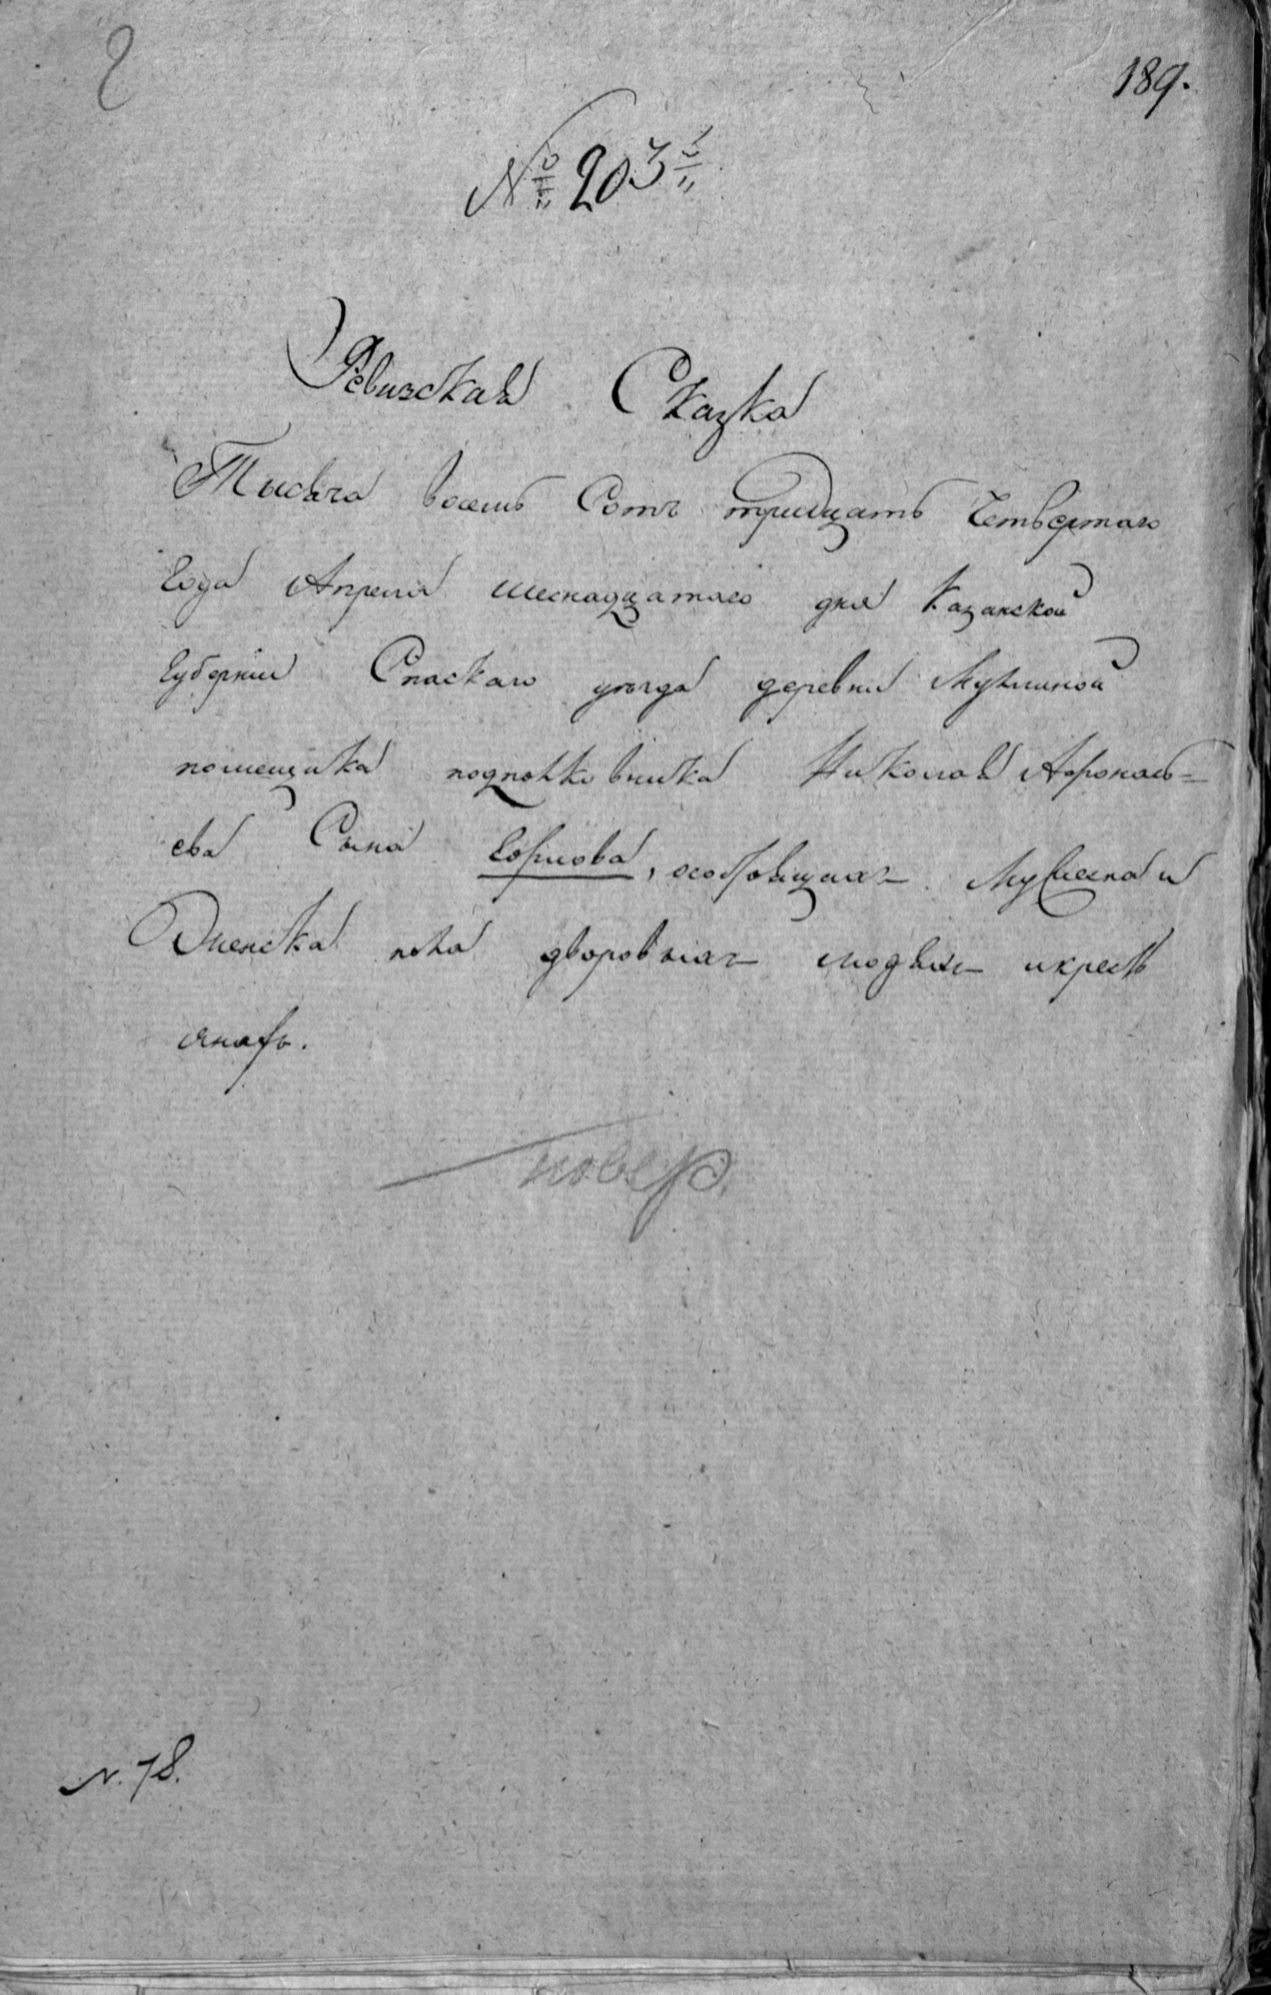 189.
№ 203й
Ревизская Сказка
Тысяча восемь Сотъ тридцать Четвертаго
Года Апреля шеснадцатаго дня Казанской
Губернии Спаскаго уезда деревни
помещика подполковника Николая Афонась=
ева Сына состоящихъ Мужеска и
Женска пола дворовыхъ людяхъ и крестъ
янахъ.
повер.
N. 78.